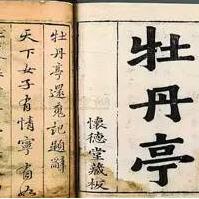 牡丹亭
懷德堂藏板
牡丹亭還魂記題辭
天下女子有情寧有如